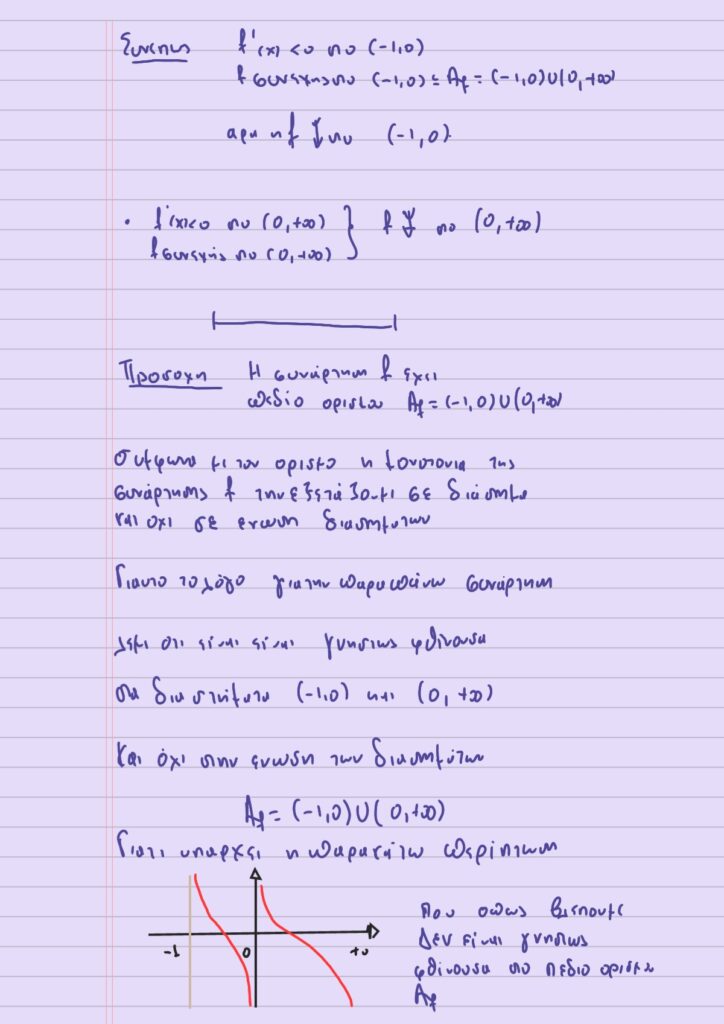 Συνεπως f'(x) <0 στο (-1,0)
f συνεχης στο (-1,0) ⊆ Af = (-1,0)∪(0,+∞)
αρα η f ↓ στο (-1,0)
• f'(x)<0 στο (0,+∞) } f ↓ στο (0,+∞)
f συνεχής στο (0,+∞)
Προσοχη Η συνάρτηση f εχει
πεδιο ορισμου Af = (-1,0)∪(0,+∞)
συμφωνα με τον ορισμο η μονοτονια της
συνάρτησης f την εξετάζουμε σε διάστημα
και οχι σε ενωση διαστημάτων
Γιαυτο το λόγο για την παραπάνω συνάρτηση
λεμε οτι είναι είναι γνησιως φθίνουσα
στα διαστήματα (-1,0) και (0,+∞)
και όχι στην ενωση των διαστημάτων
Af = (-1,0)∪(0,+∞)
Γιατι υπαρχει η παρακάτω περίπτωση
-1 0 +∞
που οπως βλεπουμε
Δεν ειναι γνησιως
φθίνουσα στο πεδιο ορισμου
Af